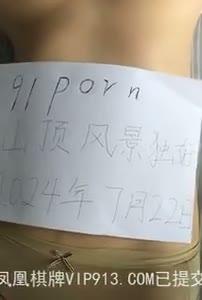 91porn
山顶风景独好
2024年7月22日
凤凰棋牌VIP913.COM已提交